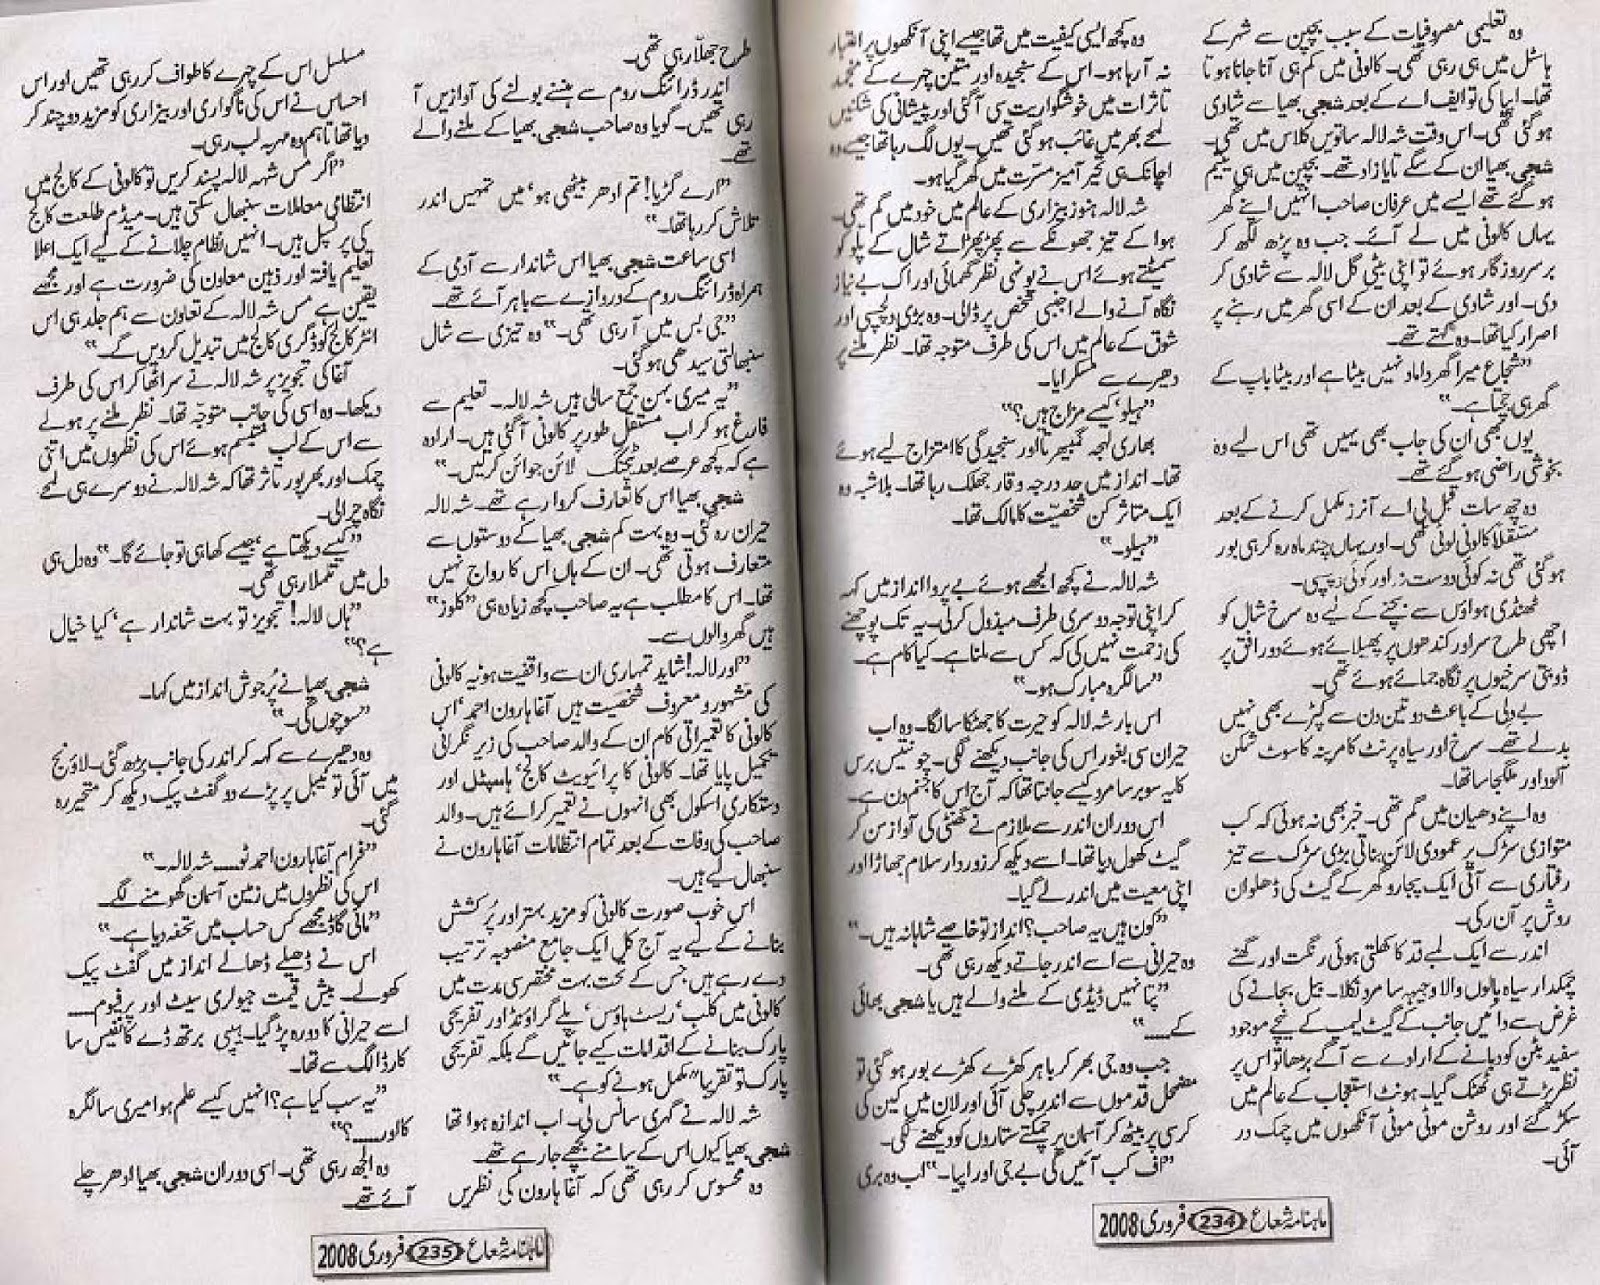 وہ تعلیمی مصروفیات کے سبب بچپن سے شہر کے
ہاسٹل میں ہی رہی تھی۔ کالونی میں کم ہی آنا جانا ہوتا
تھا۔ اپیا کی تو ایف اے کے بعد شجی بھیا سے شادی
ہو گئی تھی۔ اس وقت شہ لالہ ساتویں کلاس میں تھی۔
شجی بھیا ان کے سگے تایا زاد تھے۔ بچپن میں ہی یتیم
ہو گئے تھے ایسے میں عرفان صاحب انہیں اپنے گھر
یہاں کالونی میں لے آئے۔ جب وہ پڑھ لکھ کر
برسر روزگار ہوئے تو اپنی بیٹی گل لالہ سے شادی کر
دی۔ اور شادی کے بعد ان کے اسی گھر میں رہنے پر
اصرار کیا تھا۔ وہ کہتے تھے۔
”شجاع میرا گھر داماد نہیں بیٹا ہے اور بیٹا باپ کے
گھر ہی جچتا ہے۔“
یوں بھی ان کی جاب بھی یہیں تھی اس لیے وہ
بخوشی راضی ہو گئے تھے۔
وہ چھ سات قبل بی اے آنرز مکمل کرنے کے بعد
مستقلاً کالونی لوٹی تھی۔ اور یہاں چند ماہ رہ کر ہی بور
ہو گئی تھی نہ کوئی دوست نہ اور کوئی دلچسپی۔
ٹھنڈی ہواؤں سے بچنے کے لیے وہ سرخ شال کو
اچھی طرح سر اور کندھوں پر پھیلائے ہوئے دور افق پر
ڈوبتی سرخیوں پر نگاہ جمائے ہوئے تھی۔
بے دلی کے باعث دو تین دن سے کپڑے بھی نہیں
بدلے تھے۔ سرخ اور سیاہ پرنٹ کا مرینہ کا سوٹ شکن
آلود اور ملگجا سا تھا۔
وہ اپنے دھیان میں گم تھی۔ خبر بھی نہ ہوئی کہ کب
متوازی سڑک پر عمودی لائن بناتی بڑی سڑک سے تیز
رفتاری سے آتی ایک پجارو گھر کے گیٹ کی ڈھلوان
روش پر آن رکی۔
اندر سے ایک لمبے قد کا کھلتی ہوئی رنگت اور گھنے
چمکدار سیاہ بالوں والا وجیہہ سا مرد نکلا۔ بیل بجانے کی
غرض سے دائیں جانب کے گیٹ لیمپ کے نیچے موجود
سفید بٹن کو دبانے کے ارادے سے آگے بڑھا تو اس پر
نظر پڑتے ہی ٹھٹک گیا۔ ہونٹ استعجاب کے عالم میں
سکڑ گئے اور روشن موٹی موٹی آنکھوں میں چمک در
آئی۔
وہ کچھ ایسی کیفیت میں تھا جیسے اپنی آنکھوں پر اعتبار
نہ آ رہا ہو۔ اس کے سنجیدہ اور متین چہرے کے منجمد
تاثرات میں خوشگواریت سی آ گئی اور پیشانی کی شکنیں
لمحے بھر میں غائب ہو گئی تھیں۔ یوں لگ رہا تھا جیسے وہ
اچانک ہی تحیر آمیز مسرت میں گھر گیا ہو۔
شہ لالہ ہنوز بیزاری کے عالم میں خود میں گم تھی۔
ہوا کے تیز جھونکے سے پھڑپھڑاتے شال کے پلو کو
سمیٹتے ہوئے اس نے یونہی نظر گھمائی اور اک بے نیاز
نگاہ آنے والے اجنبی شخص پر ڈالی۔ وہ بڑی دلچسپی اور
شوق کے عالم میں اس کی طرف متوجہ تھا۔ نظر ملنے پر
دھیرے سے مسکرایا۔
”ہیلو‘ کیسے مزاج ہیں؟“
بھاری لہجہ گمبھیرتا اور سنجیدگی کا امتزاج لیے ہوئے
تھا۔ انداز میں حد درجہ وقار جھلک رہا تھا۔ بلاشبہ وہ
ایک متاثر کن شخصیت کا مالک تھا۔
”ہیلو۔“
شہ لالہ نے کچھ الجھے ہوئے بے پروا انداز میں کہہ
کر اپنی توجہ دوسری طرف مبذول کر لی۔ یہ تک پوچھنے
کی زحمت نہیں کی کہ کس سے ملنا ہے۔ کیا کام ہے۔
”سالگرہ مبارک ہو۔“
اس بار شہ لالہ کو حیرت کا جھٹکا سا لگا۔ وہ اب
حیران سی بغور اس کی جانب دیکھنے لگی۔ چونتیس برس
کا یہ سوبر سا مرد کیسے جانتا تھا کہ آج اس کا جنم دن ہے۔
اس دوران اندر سے ملازم نے گھنٹی کی آواز سن کر
گیٹ کھول دیا تھا۔ اسے دیکھ کر زوردار سلام جھاڑا اور
اپنی معیت میں اندر لے گیا۔
”کون ہیں یہ صاحب؟ انداز تو خاصے شاہانہ ہیں۔“
وہ حیرانی سے اسے اندر جاتے دیکھ رہی تھی۔
”پتا نہیں ڈیڈی کے ملنے والے ہیں یا شجی بھائی
کے.....“
جب وہ جی بھر کر باہر کھڑے کھڑے بور ہو گئی تو
مضمحل قدموں سے اندر چلی آئی اور لان میں کین کی
کرسی پر بیٹھ کر آسمان پر چمکتے ستاروں کو دیکھنے لگی۔
”اف کب آئیں گی بے جی اور اپیا۔“ اب وہ بری
ماہنامہ شعاع 234 فروری 2008
طرح جھلا رہی تھی۔
اندر ڈرائنگ روم سے ہنسنے بولنے کی آوازیں آ
رہی تھیں۔ گویا وہ صاحب شجی بھیا کے ملنے والے
تھے۔
”ارے گڑیا! تم ادھر بیٹھی ہو‘ میں تمہیں اندر
تلاش کر رہا تھا۔“
اسی ساعت شجی بھیا اس شاندار سے آدمی کے
ہمراہ ڈرائنگ روم کے دروازے سے باہر آئے تھے۔
”جی بس میں آ رہی تھی۔“ وہ تیزی سے شال
سنبھالتی سیدھی ہو گئی۔
”یہ میری بہن جمع سالی ہیں شہ لالہ۔ تعلیم سے
فارغ ہو کر اب مستقل طور پر کالونی آ گئی ہیں۔ ارادہ
ہے کہ کچھ عرصے بعد ٹیچنگ لائن جوائن کر لیں۔“
شجی بھیا اس کا تعارف کروا رہے تھے۔ شہ لالہ
حیران رہ گئی۔ وہ بہت کم شجی بھیا کے دوستوں سے
متعارف ہوتی تھی۔ ان کے ہاں اس کا رواج نہیں
تھا۔ اس کا مطلب ہے یہ صاحب کچھ زیادہ ہی ”کلوز“
ہیں گھر والوں سے۔
”اور لالہ! شاید تمہاری ان سے واقفیت ہو یہ کالونی
کی مشہور و معروف شخصیت ہیں آغا ہارون احمد‘ اس
کالونی کا تعمیراتی کام ان کے والد صاحب کی زیر نگرانی
تکمیل پایا تھا۔ کالونی کا پرائیویٹ کالج‘ ہاسپٹل اور
دستکاری اسکول بھی انہوں نے تعمیر کرائے ہیں۔ والد
صاحب کی وفات کے بعد تمام انتظامات آغا ہارون نے
سنبھال لیے ہیں۔
اس خوب صورت کالونی کو مزید بہتر اور پُر کشش
بنانے کے لیے یہ آج کل ایک جامع منصوبہ ترتیب
دے رہے ہیں جس کے تحت بہت مختصر سی مدت میں
کالونی میں کلب‘ ریسٹ ہاؤس‘ پلے گراؤنڈ اور تفریحی
پارک بنانے کے اقدامات کیے جائیں گے بلکہ تفریحی
پارک تو تقریباً مکمل ہونے کو ہے۔“
شہ لالہ نے گہری سانس لی۔ اب اندازہ ہوا تھا
شجی بھیا کیوں اس کے سامنے بچھے جا رہے تھے۔
وہ محسوس کر رہی تھی کہ آغا ہارون کی نظریں
مسلسل اس کے چہرے کا طواف کر رہی تھیں اور اس
احساس نے اس کی ناگواری اور بیزاری کو مزید دو چند کر
دیا تھا تاہم وہ مہر بہ لب رہی۔
”اگر مس شہہ لالہ پسند کریں تو کالونی کے کالج میں
انتظامی معاملات سنبھال سکتی ہیں۔ میڈم طلعت کالج
کی پرنسپل ہیں۔ انہیں نظام چلانے کے لیے ایک اعلا
تعلیم یافتہ اور ذہین معاون کی ضرورت ہے اور مجھے
یقین ہے مس شہ لالہ کے تعاون سے ہم جلد ہی اس
انٹر کالج کو ڈگری کالج میں تبدیل کر دیں گے۔“
آغا کی تجویز پر شہ لالہ نے سر اٹھا کر اس کی طرف
دیکھا۔ وہ اسی کی جانب متوجہ تھا۔ نظر ملنے پر ہولے
سے اس کے لب متبسم ہوئے اس کی نظروں میں اتنی
چمک اور بھرپور تاثر تھا کہ شہ لالہ نے دوسرے ہی لمحے
نگاہ چرا لی۔
”کیسے دیکھتا ہے‘ جیسے کھا ہی تو جائے گا۔“ وہ دل ہی
دل میں تلملا رہی تھی۔
”ہاں لالہ! تجویز تو بہت شاندار ہے‘ کیا خیال
ہے؟“
شجی بھیا نے پُر جوش انداز میں کہا۔
”سوچوں گی۔“
وہ دھیرے سے کہہ کر اندر کی جانب بڑھ گئی۔ لاؤنج
میں آئی تو ٹیبل پر پڑے دو گفٹ پیک دیکھ کر متحیر رہ
گئی۔
”فرام آغا ہارون احمد ٹو..... شہ لالہ۔“
اس کی نظروں میں زمین آسمان گھومنے لگے۔
”مائی گاڈ مجھے کس حساب میں تحفہ دیا ہے۔“
اس نے ڈھیلے ڈھالے انداز میں گفٹ پیک
کھولے۔ بیش قیمت جیولری سیٹ اور پرفیوم.....
اسے حیرانی کا دورہ پڑ گیا۔ ہیپی برتھ ڈے کا نفیس سا
کارڈ الگ سے تھا۔
”یہ سب کیا ہے؟ انہیں کیسے علم ہوا میری سالگرہ
کا اور.....؟“
وہ الجھ رہی تھی۔ اسی دوران شجی بھیا ادھر چلے
آئے تھے۔
ماہنامہ شعاع 235 فروری 2008